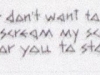 don't want to
scream my s
for you to sto